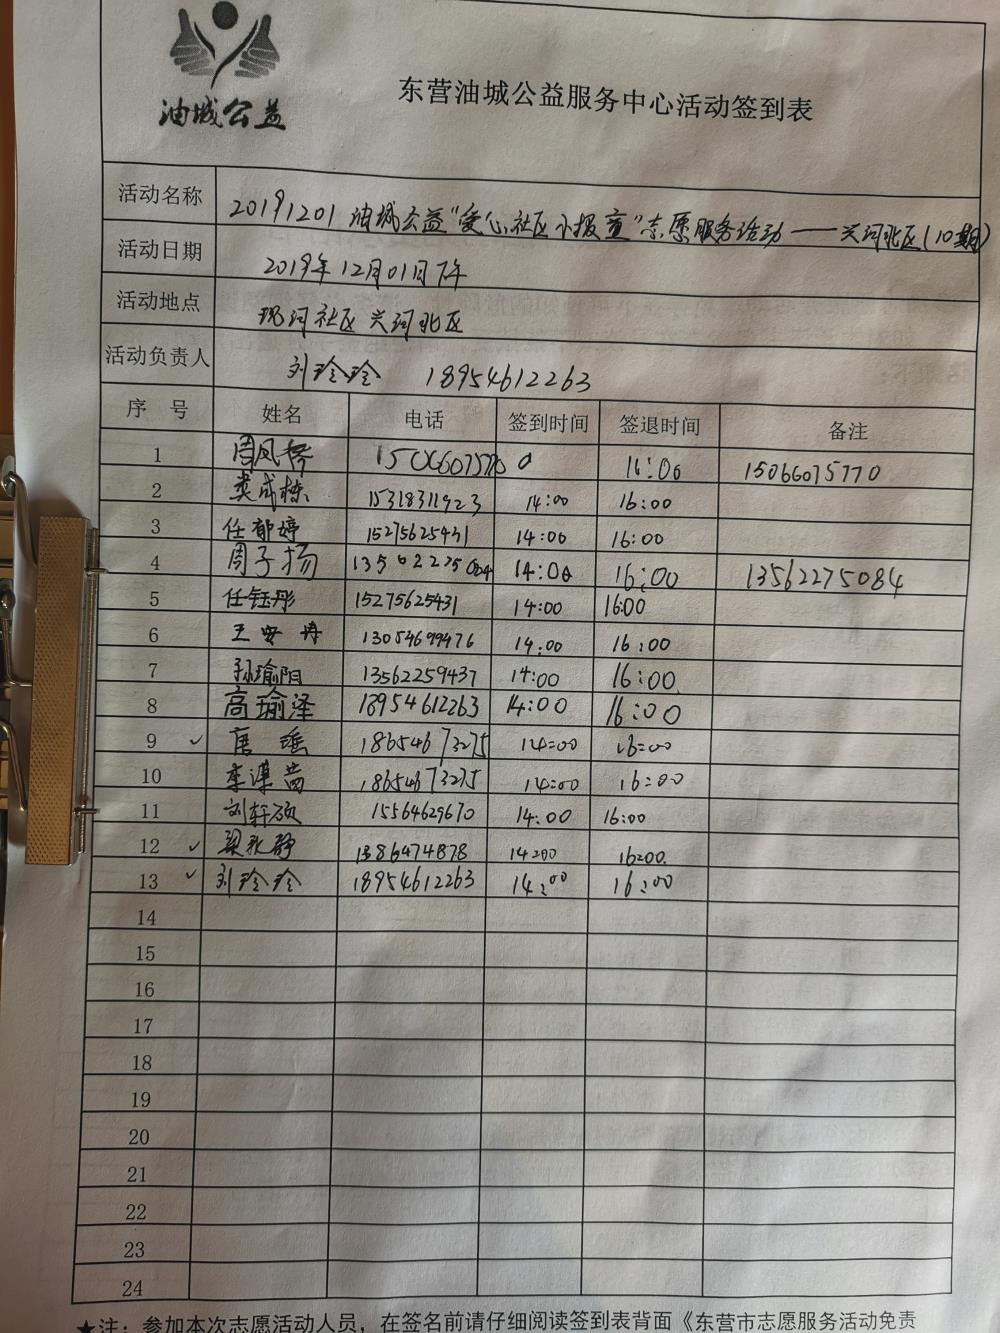 油城公益
东营油城公益服务中心活动签到表
活动名称 20191201 油城公益"爱心社区小报童"志愿服务活动——兴河北区(10期)
活动日期 2019年12月01日下午
活动地点 现河社区 兴河北区
活动负责人 刘玲玲 18954612263
序 号 姓名 电话 签到时间 签退时间 备注
1 周凤桥 16:00 15066075770
2 娄成栋 15318311923 14:00 16:00
3 任郁婷 15275625431 14:00 16:00
4 周子扬 14:00 16:00 13562275084
5 任钰彤 15275625431 14:00 16:00
6 王安冉 13054699476 14:00 16:00
7 孙瑜阳 13562259437 14:00 16:00
8 高瑜泽 18954612263 14:00 16:00
9 唐瑶 18654673275 14:00 16:00
10 李潇茜 18654673275 14:00 16:00
11 刘轩硕 15564629670 14:00 16:00
12 梁秋静 1386474878 14:00 16:00
13 刘玲玲 18954612263 14:00 16:00
14
15
16
17
18
19
20
21
22
23
24
★注：参加本次志愿活动人员，在签名前请仔细阅读签到表背面《东营市志愿服务活动免责